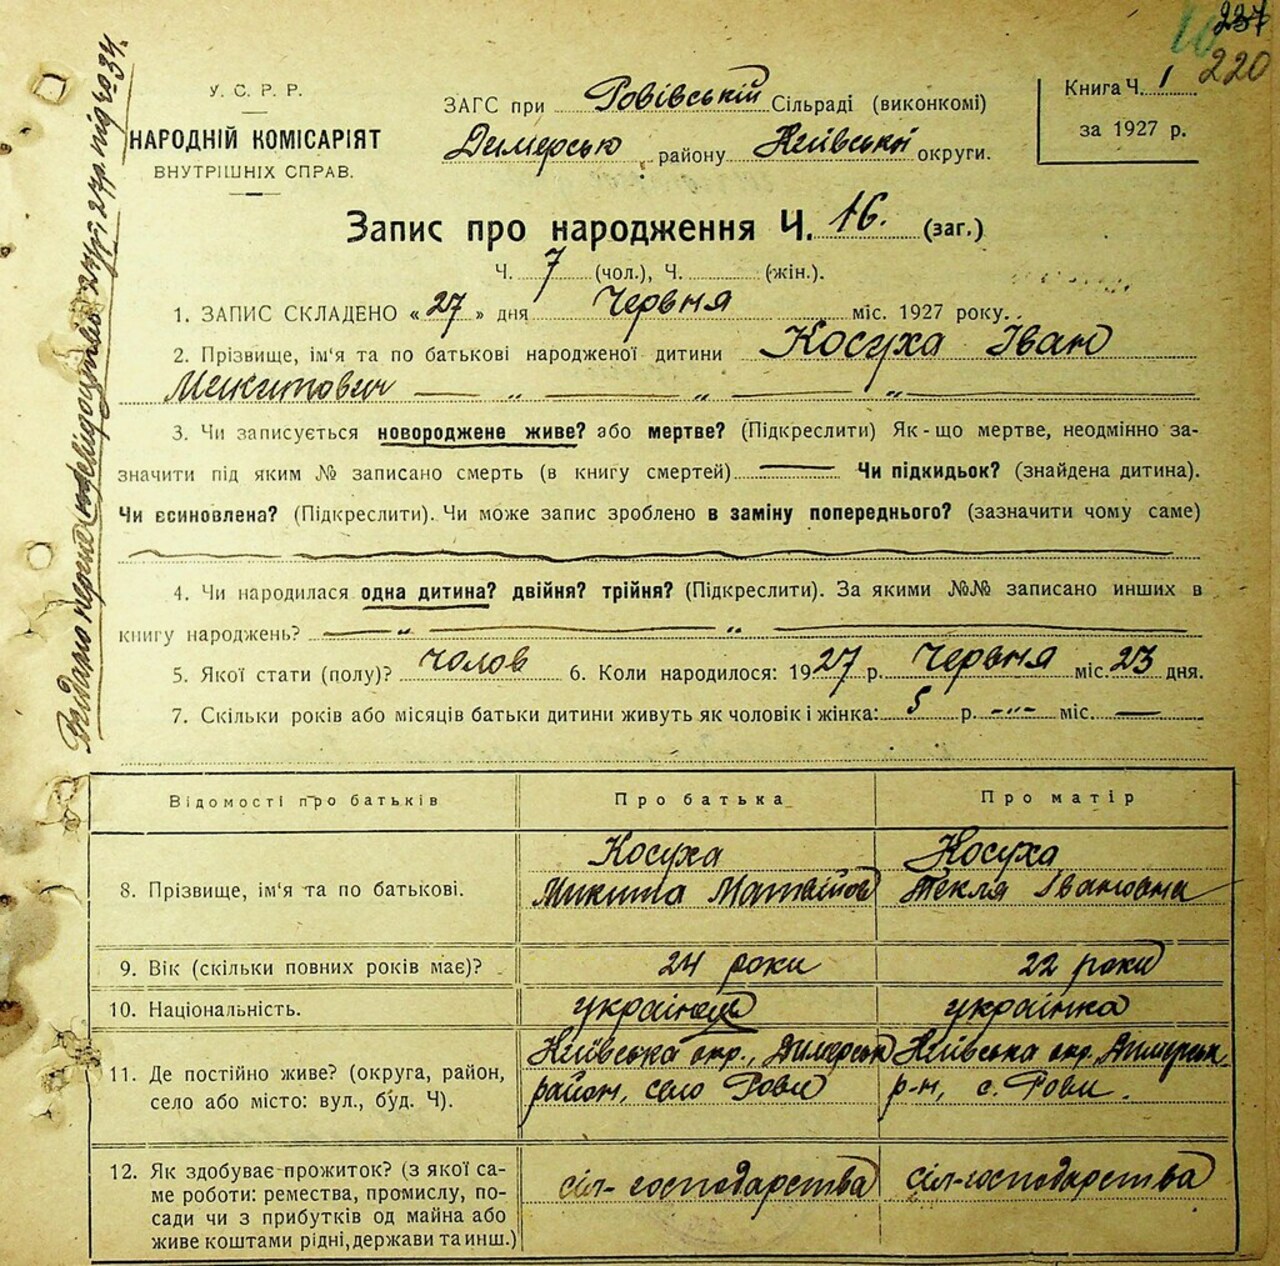 237
220
У. С. Р. Р.
НАРОДНІЙ КОМІСАРІЯТ
ВНУТРІШНІХ СПРАВ.
ЗАГС при Ровівській Сільраді (виконкомі)
Димерськ району Київської округи.
Книга Ч. 1
за 1927 р.
Запис про народження Ч. 16. (заг.)
Ч. 7 (чол.), Ч. (жін.).
1. ЗАПИС СКЛАДЕНО «27» дня Червня міс. 1927 року.
2. Прізвище, ім'я та по батькові народженої дитини Косуха Іван
Микитович — „ — „ — „ —
3. Чи записується новороджене живе? або мертве? (Підкреслити) Як-що мертве, неодмінно за-
значити під яким № записано смерть (в книгу смертей) — Чи підкидьок? (знайдена дитина).
Чи єсиновлена? (Підкреслити). Чи може запис зроблено в заміну попереднього? (зазначити чому саме)
4. Чи народилася одна дитина? двійня? трійня? (Підкреслити). За якими №№ записано инших в
книгу народжень? — „ — „ —
5. Якої стати (полу)? чолов 6. Коли народилося: 1927 р. Червня міс. 23 дня.
7. Скільки років або місяців батьки дитини живуть як чоловік і жінка: 5 р. -„- міс. —
Відомості про батьків Про батька Про матір
8. Прізвище, ім'я та по батькові. Косуха Косуха
Микита Матвійов Текля Івановна
9. Вік (скільки повних років має)? 24 роки 22 роки
10. Національність. українець українка
11. Де постійно живе? (округа, район, Київська окр., Димерськ Київська окр. Димерськ
село або місто: вул., буд. Ч). район, село Рови р-н, с. Рови.
12. Як здобуває прожиток? (з якої са- сіл-господарства сіл-господарства
ме роботи: ремества, промислу, по-
сади чи з прибутків од майна або
живе коштами рідні, держави та инш.)